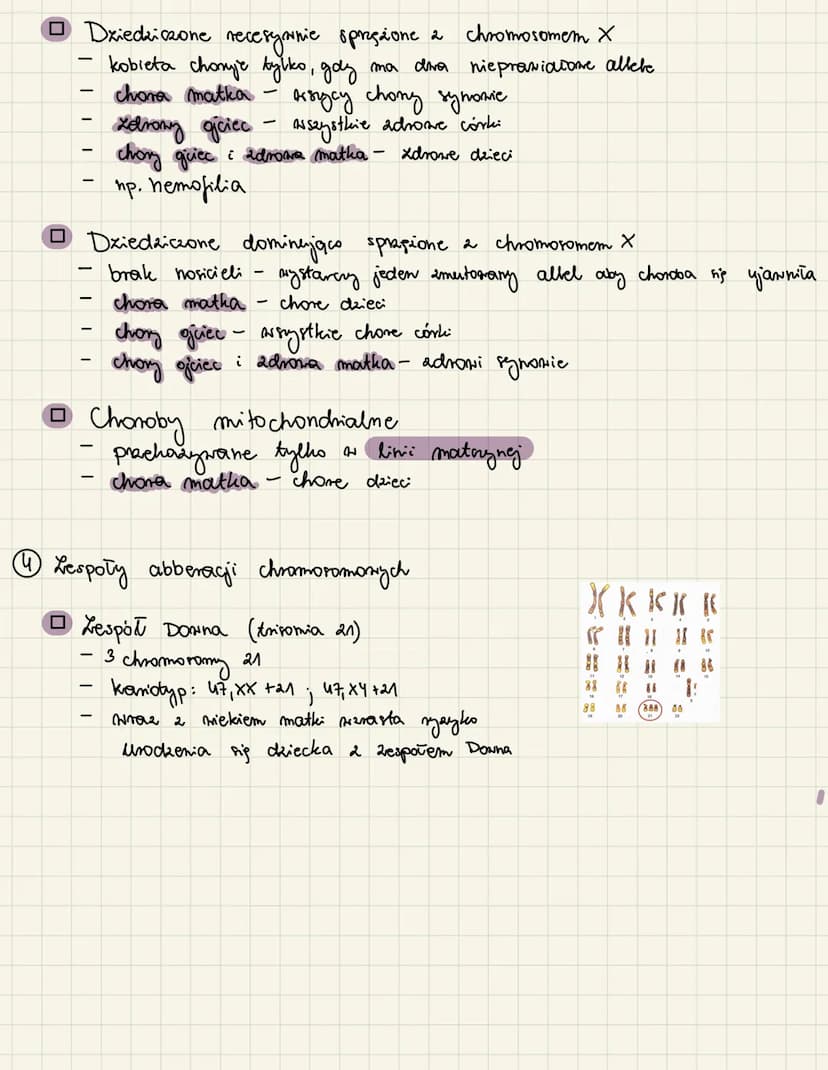 Dziedziczone recesywnie sprzężone z chromosomem X
- kobieta choruje tylko, gdy ma dwa nieprawidłowe allele
- chora matka - wszyscy chorzy synowie
- zdrowy ojciec - wszystkie zdrowe córki
- chory ojciec i zdrowa matka - zdrowe dzieci
- np. hemofilia
Dziedziczone dominująco sprzężone z chromosomem X
- brak nosicieli - wystarczy jeden zmutowany allel aby choroba się ujawniła
- chora matka - chore dzieci
- chory ojciec - wszystkie chore córki
- chory ojciec i zdrowa matka - zdrowi synowie
Choroby mitochondrialne
- przekazywane tylko w linii matczynej
- chora matka - chore dzieci
4 Zespoły abberacji chromosomowych
Zespół Downa (trisomia 21)
- 3 chromosomy 21
- kariotyp: 47,XX +21 ; 47,XY +21
- wraz z wiekiem matki wzrasta ryzyko
urodzenia się dziecka z zespołem Downa